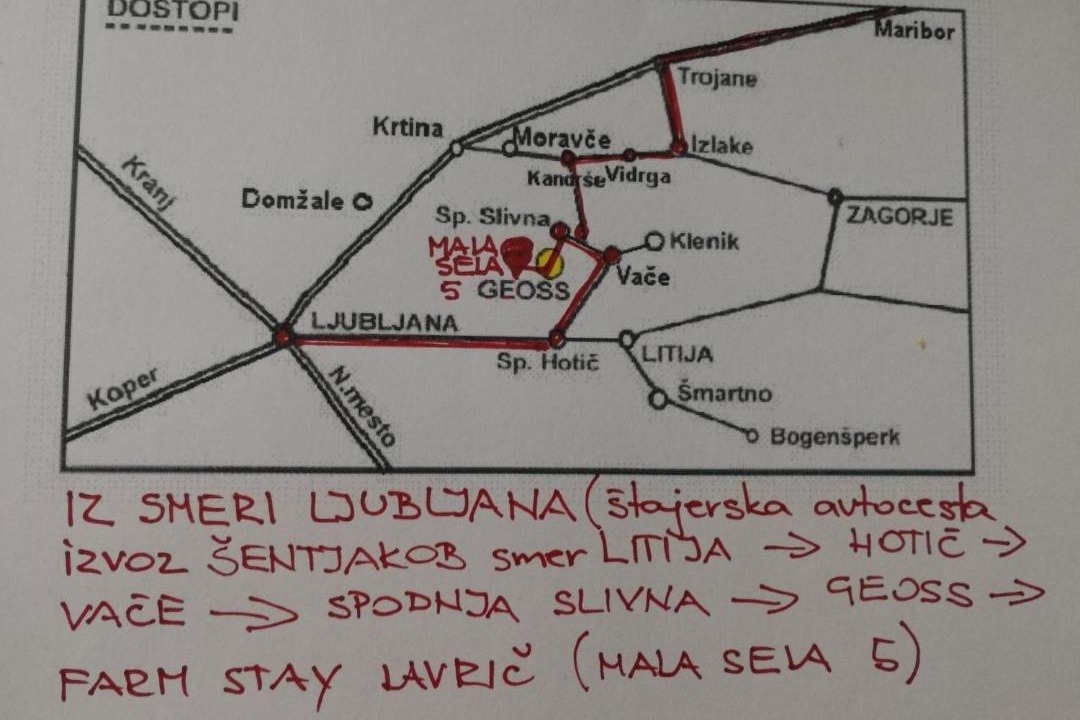 DOSTOPI
Maribor
Trojane
Krtina
Moravče
Izlake
Kranj
Kandrše
Vidrga
Domžale
ZAGORJE
Sp. Slivna
Klenik
MALA
SELA
5
GEOSS
Vače
LJUBLJANA
Sp. Hotič
LITIJA
Koper
N.mesto
Šmartno
Bogenšperk
IZ SMERI LJUBLJANA (štajerska avtocesta
izvoz ŠENTJAKOB smer LITIJA → HOTIČ →
VAČE → SPODNJA SLIVNA → GEOSS →
FARM STAY LAVRIČ (MALA SELA 5)